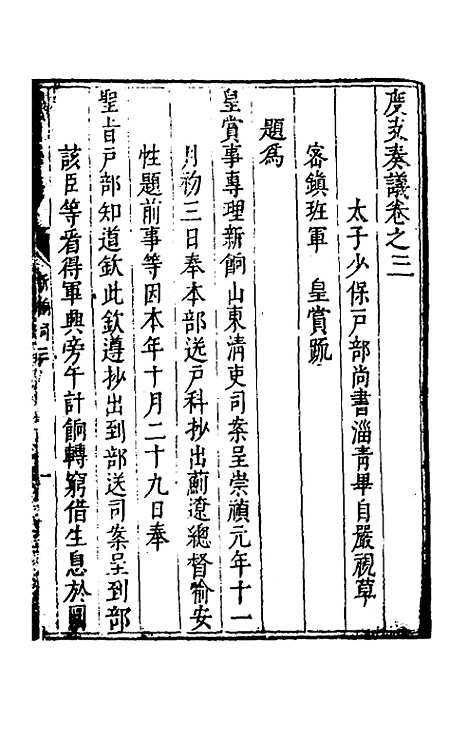 度支奏議卷之三
太子少保戸部尚書淄青畢自嚴視草
密鎮班軍　皇賞疏
題爲
皇賞事專理新餉山東清吏司案呈崇禎元年十一
月初三日奉本部送戸科抄出薊遼總督喻安
性題前事等因本年十月二十九日奉
聖旨戸部知道欽此欽遵抄出到部送司案呈到部
該臣等看得軍興旁午計餉轉窮借生息於圜